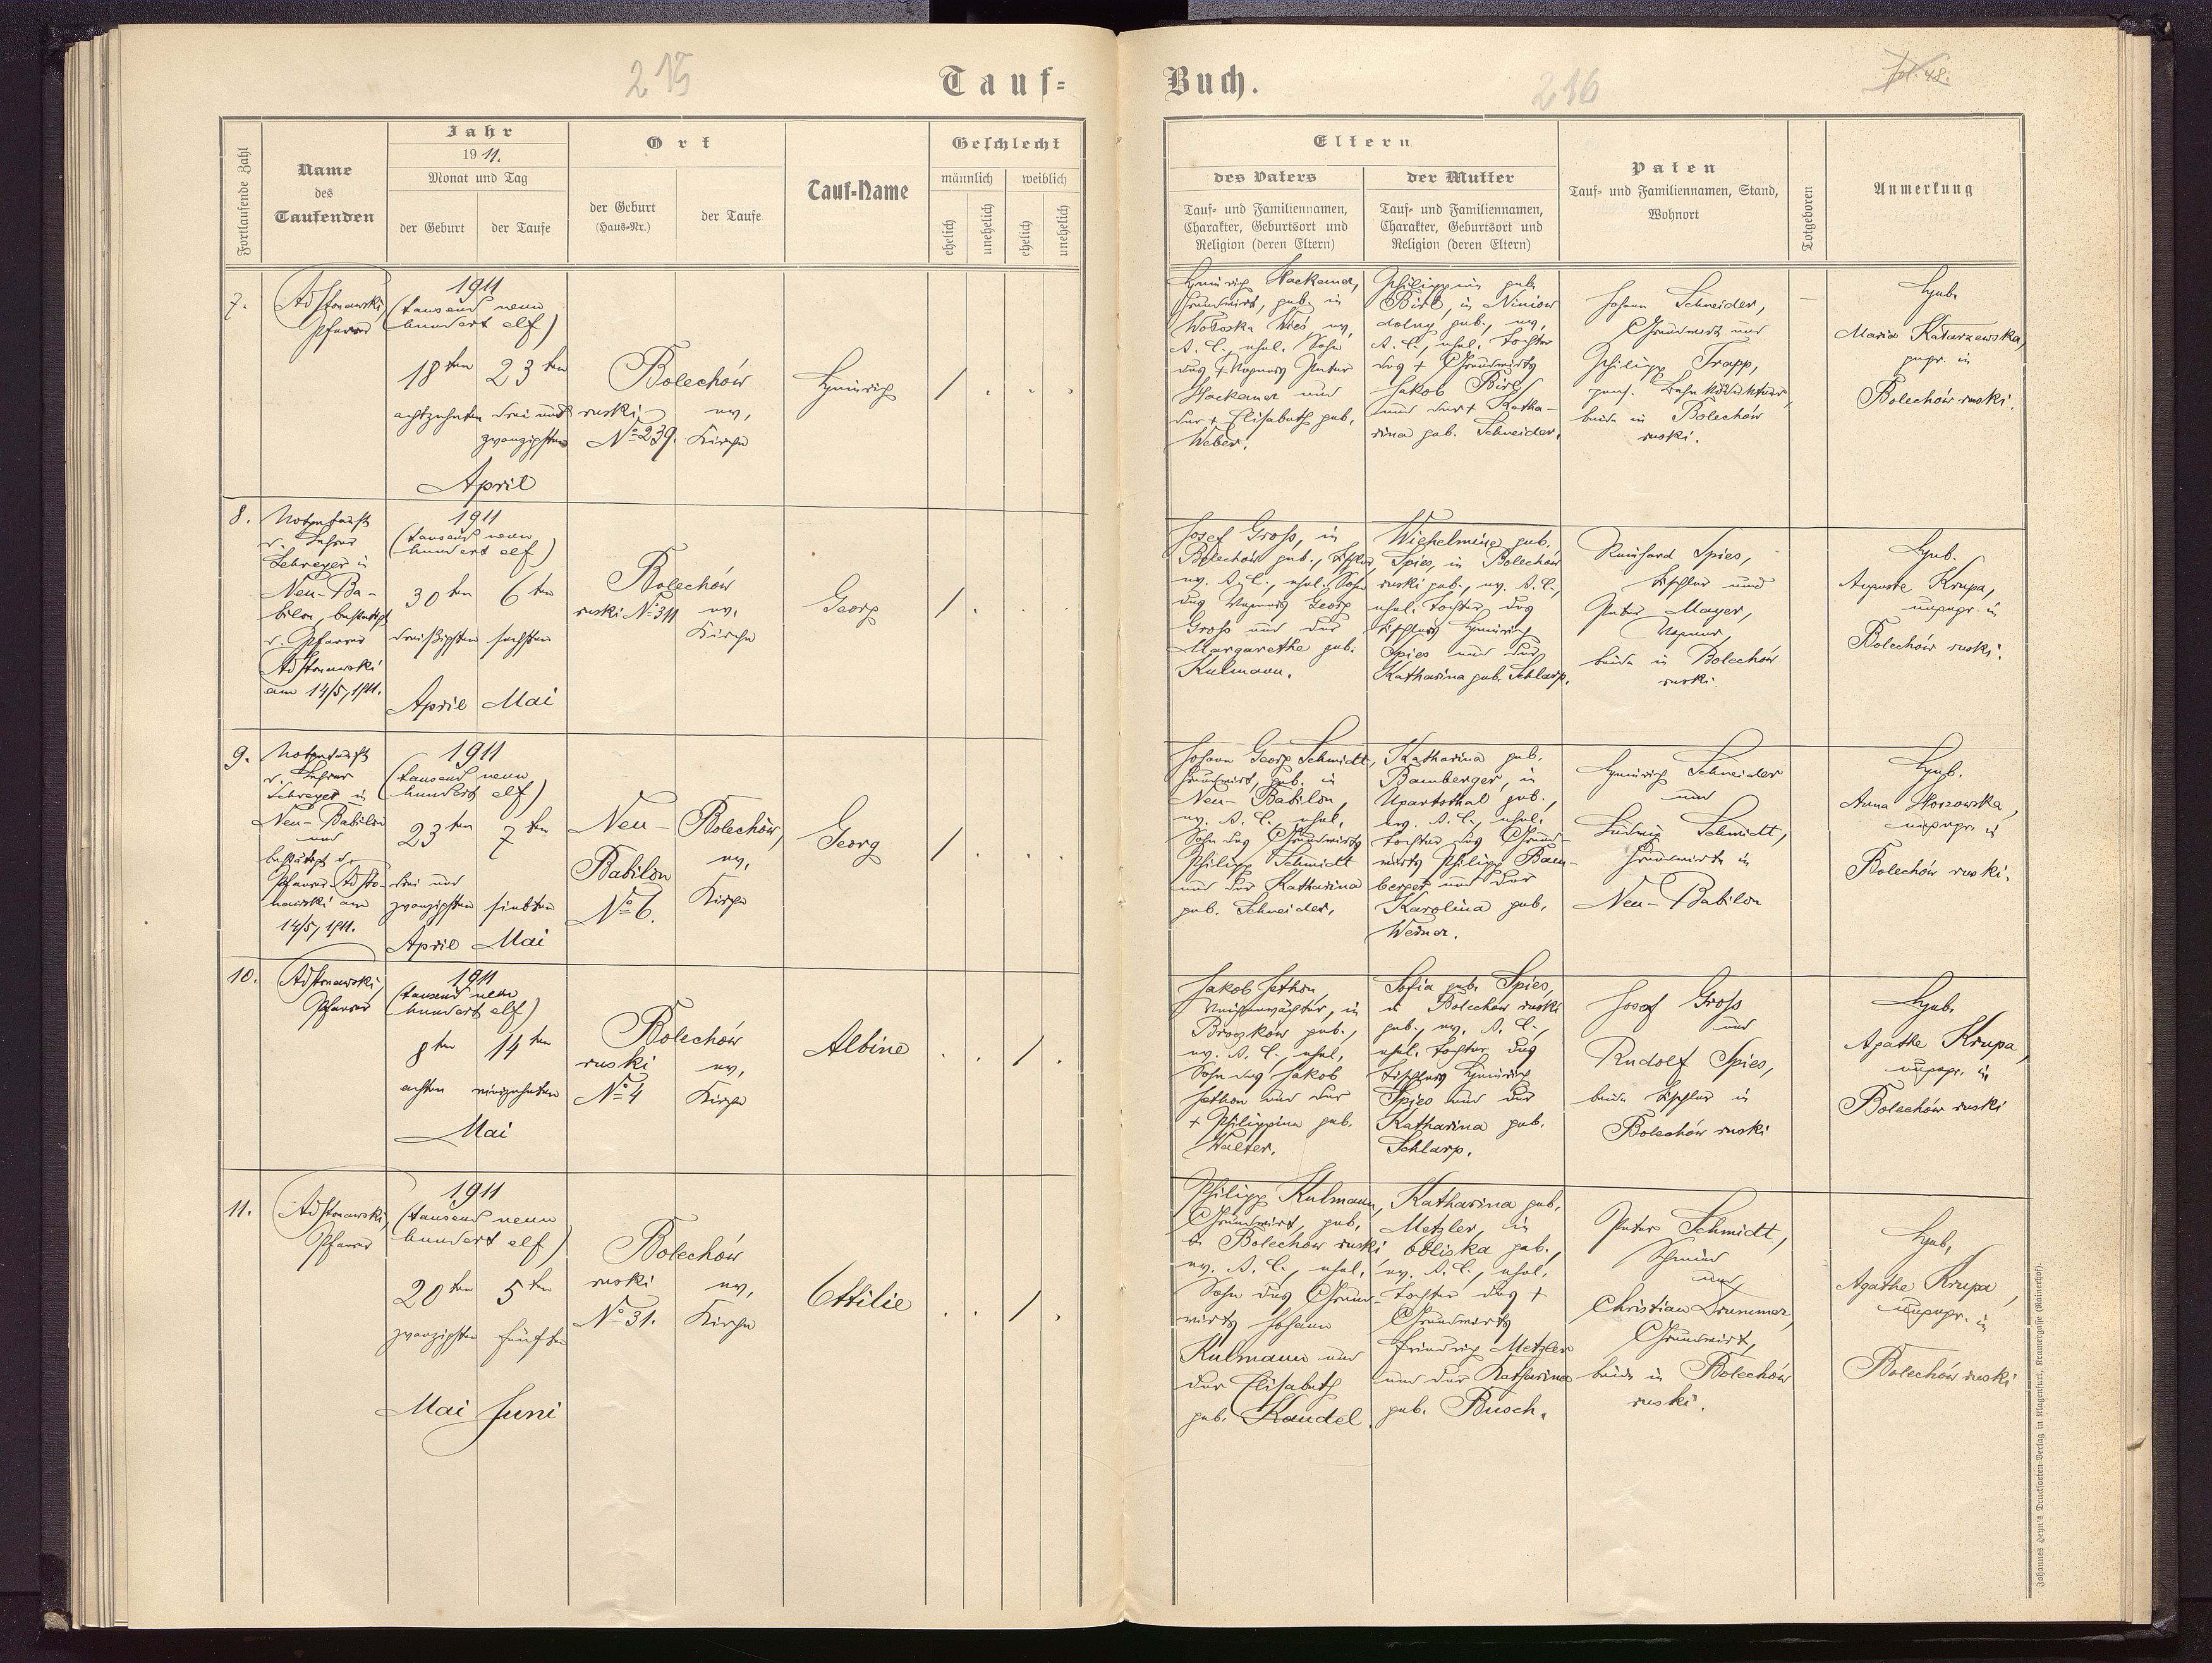 215
Tauf=
Fortlaufende Zahl
Name
des
Taufenden
Jahr
1911.
Monat und Tag
der Geburt
der Taufe
Ort
der Geburt
(Haus-Nr.)
der Taufe
Tauf-Name
Geschlecht
männlich
weiblich
ehelich
unehelich
ehelich
unehelich
7.
Adstonawski
Pfarrer
1911
(tausend neun
hundert elf)
18ten 23ten
achtzehnten drei und
zwanzigsten
April
Bolechów
ruski ev.
No 239. Kirche
Heinrich
/ . . .
8.
Notgetauft
v. Lehrer
Schreyer in
Neu-Ba-
bilon, bestätigt
v. Pfarrer
Adstonawski
am 14/5, 1911.
1911
(tausend neun
hundert elf)
30ten 6ten
dreißigsten sechsten
April Mai
Bolechów
ruski No 311 ev.
Kirche
Georg
/ . . .
9.
Notgetauft
v. Lehrer
Schreyer in
Neu-Babilon
und
bestätigt v.
Pfarrer Adsto-
nawski am
14/5, 1911.
1911
(tausend neun
hundert elf)
23ten 7ten
drei und
zwanzigsten siebten
April Mai
Neu- Bolechów,
Babilon ev.
No 6. Kirche
Georg
/ . . .
10.
Adstonawski,
Pfarrer
1911
(tausend neun
hundert elf)
8ten 14ten
achten vierzehnten
Mai
Bolechów
ruski ev.
No 4 Kirche
Albine
. . / .
11.
Adstonawski,
Pfarrer
1911
(tausend neun
hundert elf)
20ten 5ten
zwanzigsten fünften
Mai Juni
Bolechów
ruski ev.
No 31. Kirche
Ottilie
. . / .
Buch.
216
fol. 48.
Eltern
des Vaters
Tauf= und Familiennamen,
Charakter, Geburtsort und
Religion (deren Eltern)
der Mutter
Tauf= und Familiennamen,
Charakter, Geburtsort und
Religion (deren Eltern)
Paten
Tauf= und Familiennamen, Stand,
Wohnort
Totgeboren
Anmerkung
Heinrich Hackemer,
Grundwirt, geb. in
Wołoska Wieś, ev.
A. C., ehel. Sohn
des + Wagners Peter
Hackemer und
der + Elisabeth geb.
Weber.
Philippin geb.
Birl, in Niniow
dolny geb., ev.
A. C., ehel. Tochter
des + Grundwirts
Jakob Birl
und der + Katha-
rina geb. Schneider.
Johann Schneider,
Grundwirt und
Philipp Trapp,
pens. Bahnkondukteur,
beide in Bolechów
ruski.
Heb.
Maria Katarzewska,
gepr. in
Bolechów ruski.
Josef Groß, in
Bolechów geb., Tischler,
ev. A. C., ehel. Sohn
des Wagners Georg
Groß und der
Margarethe geb.
Kulmann.
Wilhelmine geb.
Spies, in Bolechów
ruski geb., ev. A. C.,
ehel. Tochter des
Tischlers Heinrich
Spies und der
Katharina geb. Schlarp.
Reinhard Spies,
Tischler und
Peter Mayer,
Wagner,
beide in Bolechów
ruski.
Heb.
Auguste Krupa,
ungepr. in
Bolechów ruski.
Johann Georg Schmidt,
Grundwirt, geb. in
Neu-Babilon,
ev. A. C., ehel.
Sohn des Grundwirts
Philipp Schmidt
und der Katharina
geb. Schneider.
Katharina geb.
Bamberger, in
Ugartsthal geb.,
ev. A. C., ehel.
Tochter des Grund-
wirts Philipp Bam-
berger und der
Karolina geb.
Werner.
Heinrich Schneider
und
Ludwig Schmidt,
Grundwirte in
Neu-Babilon
Heb.
Anna Hoszowska,
ungepr. in
Bolechów ruski.
Jakob Jethon,
in
Broczków geb.,
ev. A. C., ehel.
Sohn des Jakob
Jethon und der
+ Philippina geb.
Walter.
Sofia geb. Spies,
in Bolechów ruski
geb., ev. A. C.,
ehel. Tochter des
Tischlers Heinrich
Spies und der
Katharina geb.
Schlarp.
Josef Groß
und
Rudolf Spies,
beide Tischler in
Bolechów ruski
Heb.
Agathe Krupa,
ungepr. in
Bolechów ruski
Philipp Kulmann,
Grundwirt, geb.
in Bolechów ruski
ev. A. C., ehel.
Sohn des Grund-
wirts Johann
Kulmann und
der Elisabeth
geb. Kandel.
Katharina geb.
Metzler, in
Obliska geb.,
ev. A. C., ehel.
Tochter des +
Grundwirts
Friedrich Metzler
und der Katharina
geb. Busch.
Peter Schmidt,
Schmied
und
Christian Drummer,
Grundwirt,
beide in Bolechów
ruski.
Heb.
Agathe Krupa,
ungepr. in
Bolechów ruski
Johannes Heyn's Drucksorten-Verlag in Klagenfurt, Kramergasse (Rainerhof).